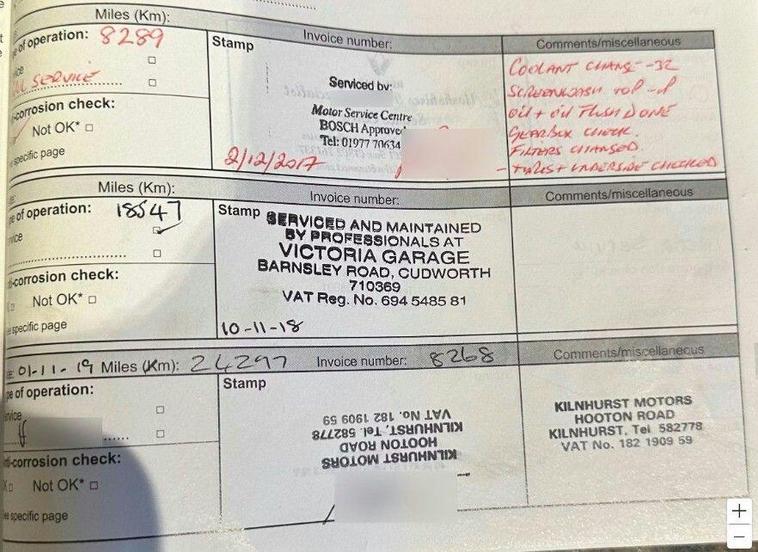 Miles (Km):
of operation: 8289
SERVICE
Stamp
Invoice number:
Serviced by:
Motor Service Centre
BOSCH Approve
Tel: 01977 70634
2/12/2017
Comments/miscellaneous
COOLANT CHANGE -32
SCREENWASH TOP -UP
OIL + OIL FLUSH DONE
GEARBOX CHECK.
FILTERS CHANGED.
- TYRES + UNDERSIDE CHECKED
-corrosion check:
Not OK* □
specific page
Miles (Km):
of operation: 18547
Stamp
Invoice number:
SERVICED AND MAINTAINED
BY PROFESSIONALS AT
VICTORIA GARAGE
BARNSLEY ROAD, CUDWORTH
710369
VAT Reg. No. 694 5485 81
10-11-18
Comments/miscellaneous
-corrosion check:
Not OK* □
specific page
01-11-19 Miles (Km): 24297
Invoice number: 8268
Comments/miscellaneous
of operation:
Stamp
KILNHURST MOTORS
HOOTON ROAD
KILNHURST, Tel. 582778
VAT No. 182 1909 59
KILNHURST MOTORS
HOOTON ROAD
KILNHURST, Tel 582778
VAT No. 182 1909 59
-corrosion check:
Not OK* □
specific page